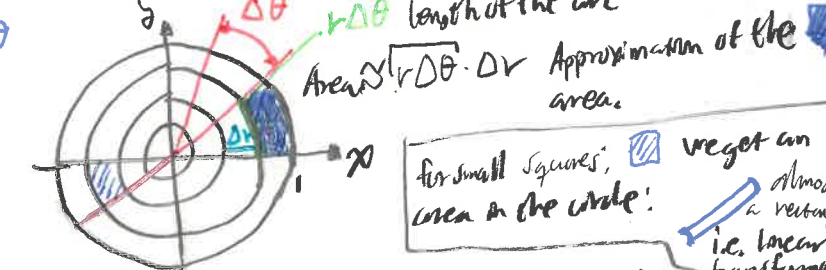 θ
y Δθ rΔθ length of the arc
Area ≈ rΔθ · Δr Approximation of the
area.
Δr
x
1
for small squares, we get an
area in the circle:
almo
a rectan
i.e. linear
transforma